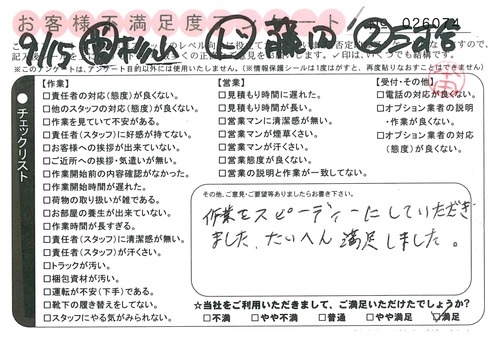 お客様不満足度アンケート
026074
9/15 杉山 藤田
記入後
※このアンケートは、アンケート目的以外には使用いたしません。(※情報保護シールは1度がはずと、再度貼りなおすことはできません)
チェックリスト
【作業】
□責任者の対応(態度)が良くない。
□他のスタッフの対応(態度)が良くない。
□作業を見ていて不安がある。
□責任者(スタッフ)に好感が持てない。
□お客様への挨拶が出来ていない。
□ご近所への挨拶・気遣いが無い。
□作業開始前の内容確認がなかった。
□作業開始時間が遅れた。
□荷物の取り扱いが雑である。
□お部屋の養生が出来ていない。
□作業時間が長すぎる。
□責任者(スタッフ)に清潔感が無い。
□責任者(スタッフ)が汗くさい。
□トラックが汚い。
□梱包資材が汚い。
□運転が不安(下手)である。
□靴下の履き替えをしてない。
□スタッフにやる気がみられない。
【営業】
□見積もり時間に遅れた。
□見積もり時間が長い。
□営業マンに清潔感が無い。
□営業マンが煙草くさい。
□営業マンが汗くさい。
□営業態度が良くない。
□営業の説明と作業が一致してない。
【受付・その他】
□電話の対応が良くない。
□オプション業者の説明
・作業が良くない。
□オプション業者の対応
(態度)が良くない。
その他、ご意見・ご要望等ありましたらお書き下さい。
作業をスピーディーにしていただき
ました、たいへん満足しました。
☆当社をご利用いただきまして、ご満足いただけたでしょうか?
□不満 □やや不満 □普通 □やや満足 ☑満足